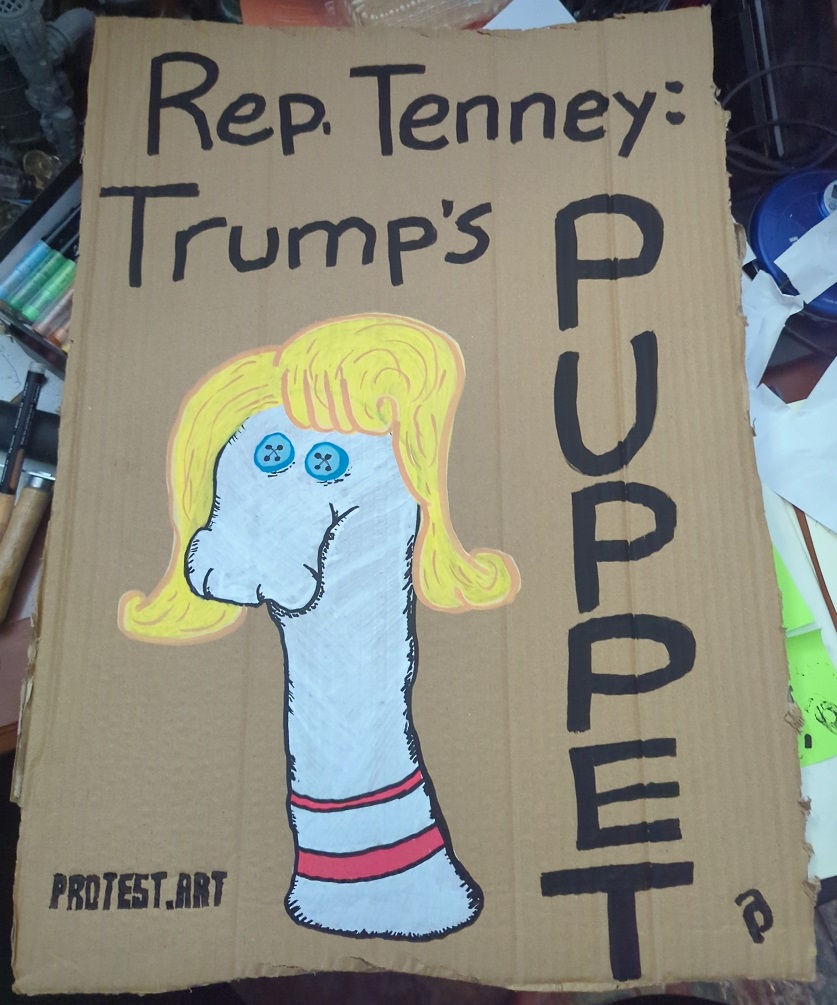 Rep. Tenney:
Trump's
PUPPET
PROTEST.ART